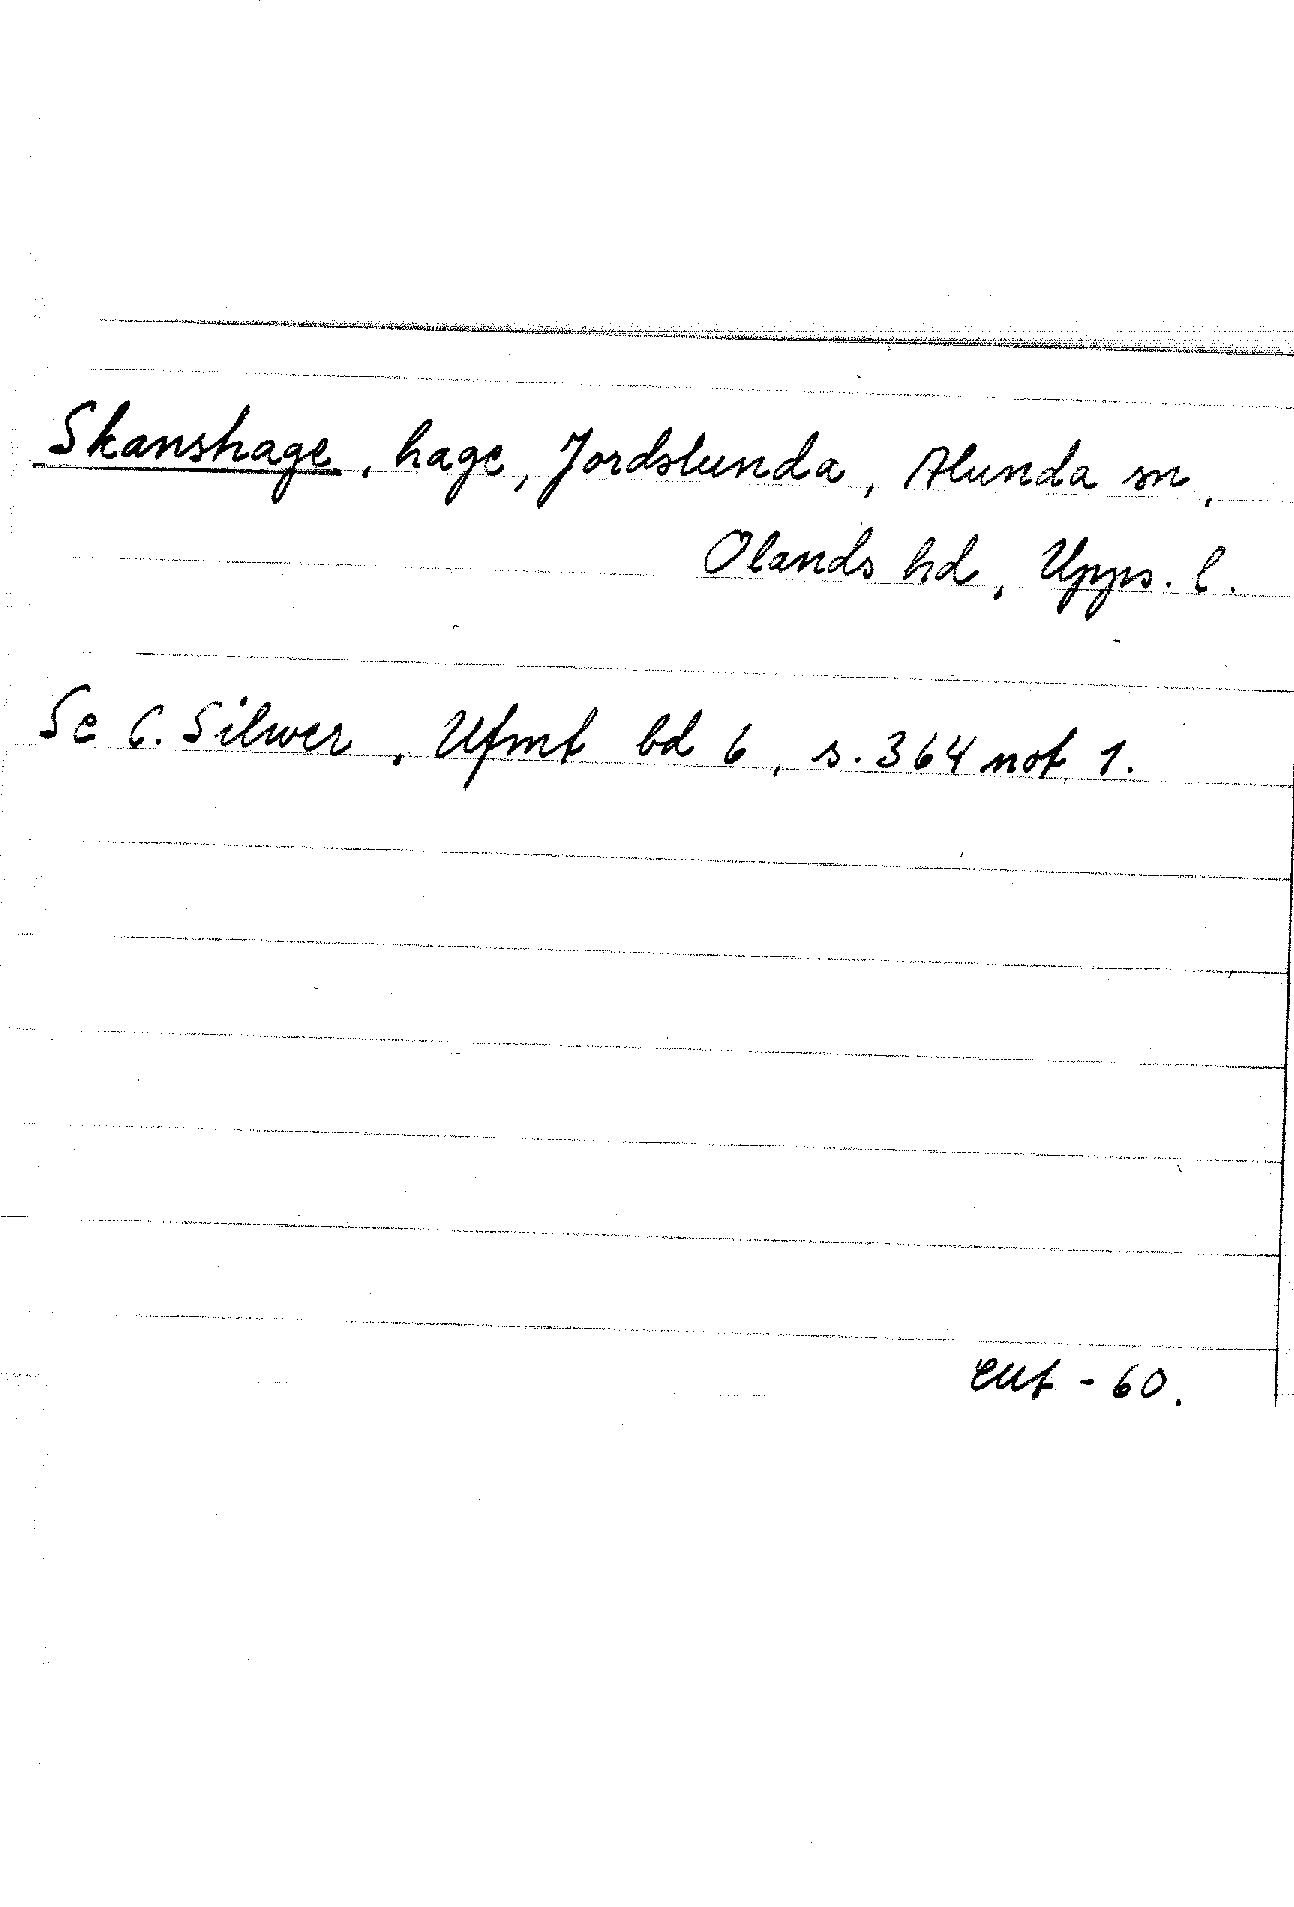 Skanshage, hage, Jordslunda, Alunda sn,
Olands hd, Upps. l.
Se C. Silwer, Ufmt bd 6, s. 364 not 1.
- 60.